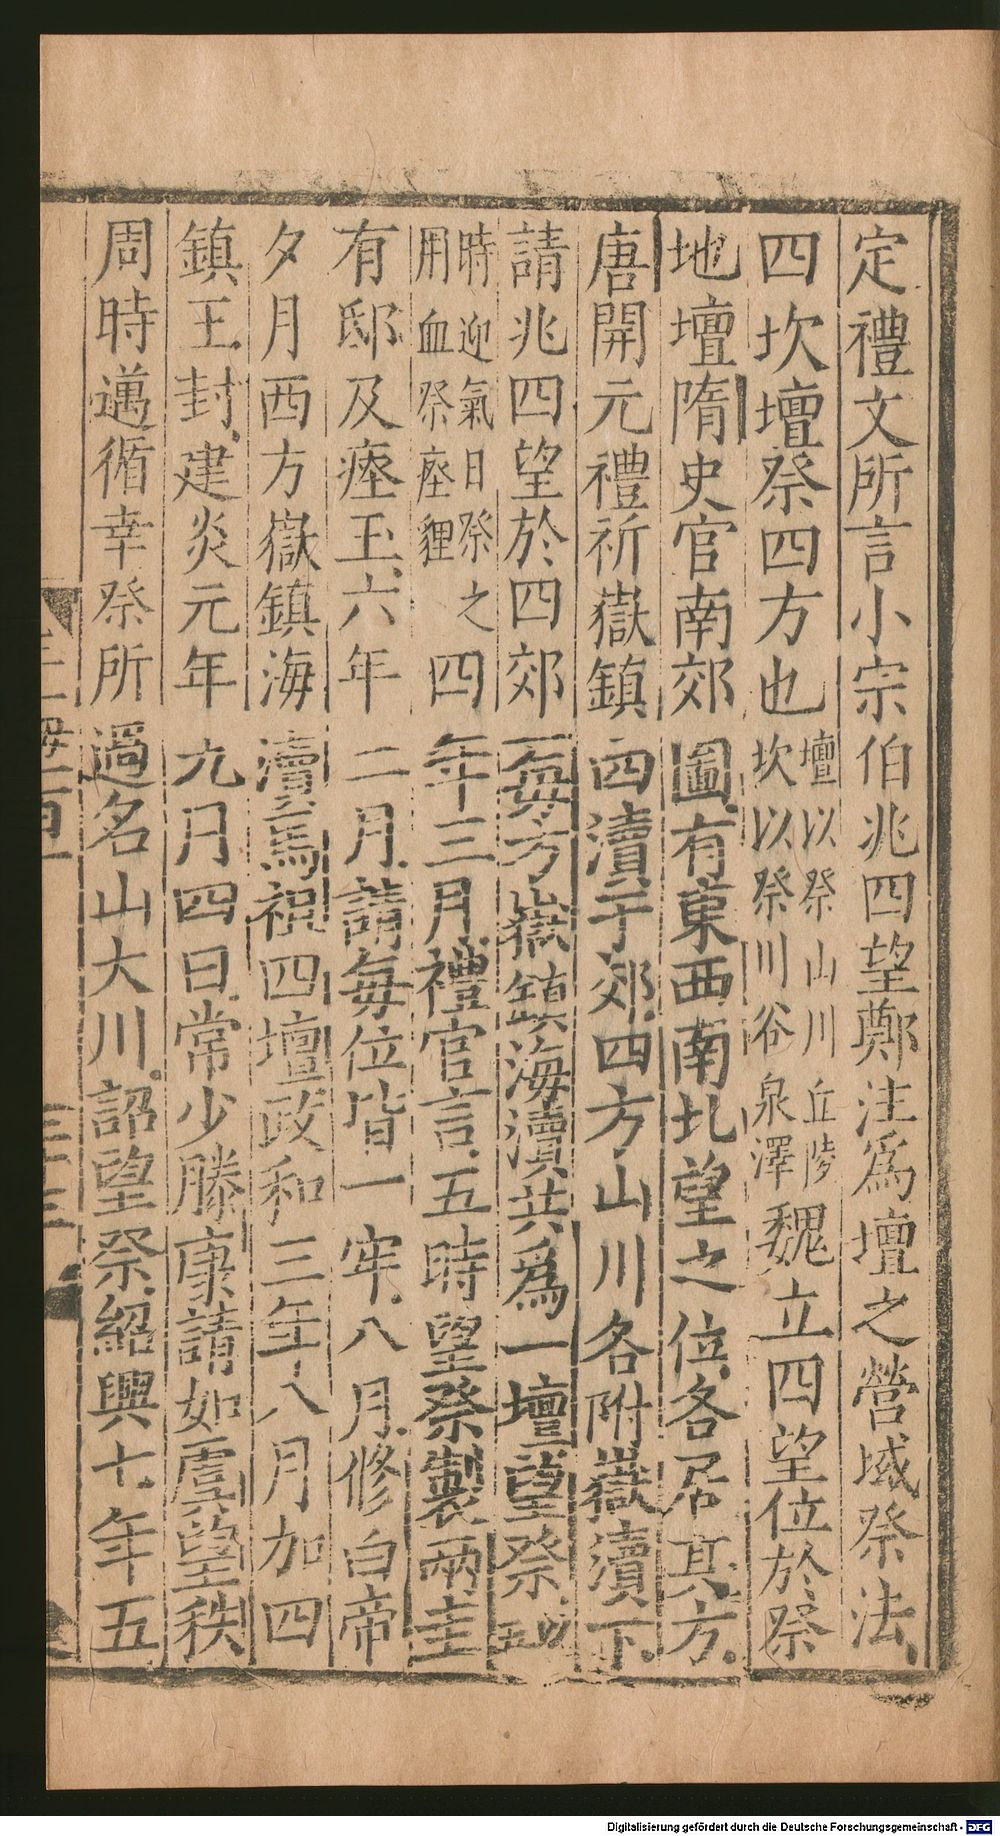 定禮文所言小宗伯兆四望鄭注為壇之營域祭法
四坎壇祭四方也壇以祭山川丘陵坎以祭川谷泉澤魏立四望位於祭
地壇隋史官南郊圖有東西南北望之位各居其方
唐開元禮祈嶽鎮四瀆于郊四方山川各附嶽瀆下
請兆四望於四郊每方嶽鎮海瀆共為一壇望祭
時迎氣日祭之用血祭座貍四年三月禮官言五時望祭製兩圭
有邸及瘞玉六年二月請每位皆一牢八月修白帝
夕月西方嶽鎮海瀆馬祖四壇政和三年八月加四
鎮王封建炎元年九月四日常少滕康請如虞望秩
周時邁循幸祭所過名山大川詔望祭紹興七年五
Digitalisierung gefördert durch die Deutsche Forschungsgemeinschaft - DFG